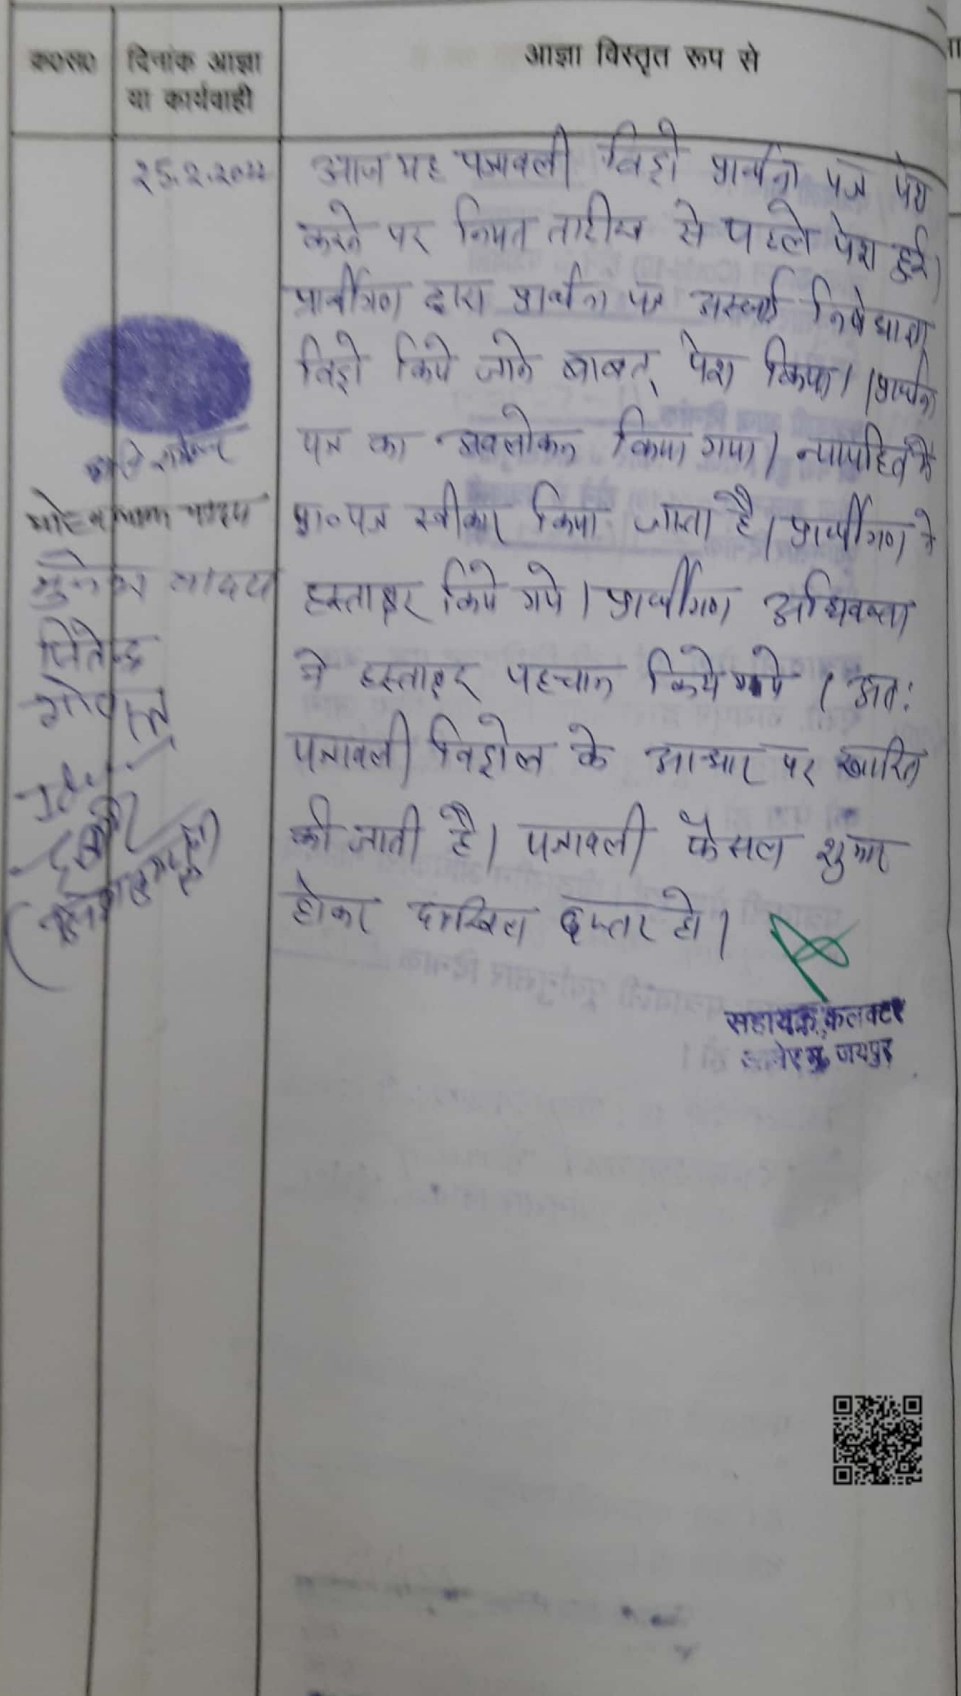 क०स० दिनांक आज्ञा या कार्यवाही आज्ञा विस्तृत रूप से
25.2.2022 आज यह पत्रावली विड्रो प्रार्थना पत्र पेश
करने पर नियत तारीख से पहले पेश हुई।
प्रार्थीगण द्वारा प्रार्थना पत्र अस्थाई निषेधाज्ञा
विड्रो किये जाने बाबत् पेश किया। प्रार्थना
पत्र का अवलोकन किया गया। न्यायहित में
प्रा०पत्र स्वीकार किया जाता है। प्रार्थीगण ने
हस्ताक्षर किये गये। प्रार्थीगण अधिवक्ता
ने हस्ताक्षर पहचान किये गये। अतः
पत्रावली विड्रोल के आधार पर खारिज
की जाती है। पत्रावली फैसल शुमार
होकर दाखिल दफ्तर हो।
सहायक कलक्टर
आमेर मु. जयपुर
मोहनलाल यादव
मुकेश यादव
जितेन्द्र
गोपाल